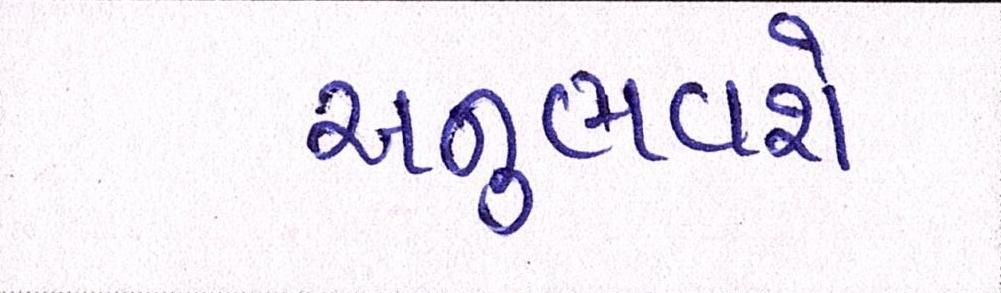 અનુભવશે